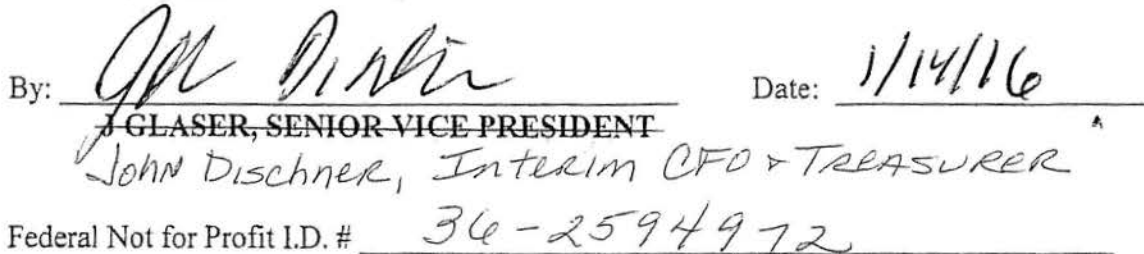 By: John Dischner Date: 1/14/16
J GLASER, SENIOR VICE PRESIDENT
John Dischner, Interim CFO & TREASURER
Federal Not for Profit I.D. # 36-2594972